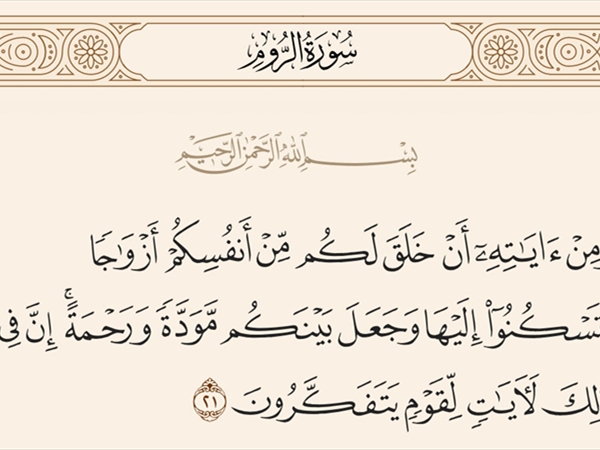 سُورَةُ الرُّومِ
بِسْمِ اللَّهِ الرَّحْمَٰنِ الرَّحِيمِ
مِنْ ءَايَٰتِهِۦٓ أَنْ خَلَقَ لَكُم مِّنْ أَنفُسِكُمْ أَزْوَٰجًا
تَسْكُنُوٓا۟ إِلَيْهَا وَجَعَلَ بَيْنَكُم مَّوَدَّةً وَرَحْمَةً ۚ إِنَّ فِى
لِكَ لَءَايَٰتٍ لِّقَوْمٍ يَتَفَكَّرُونَ ٢١